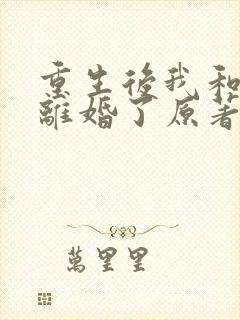 重生後我和
離婚了原著
萬里里